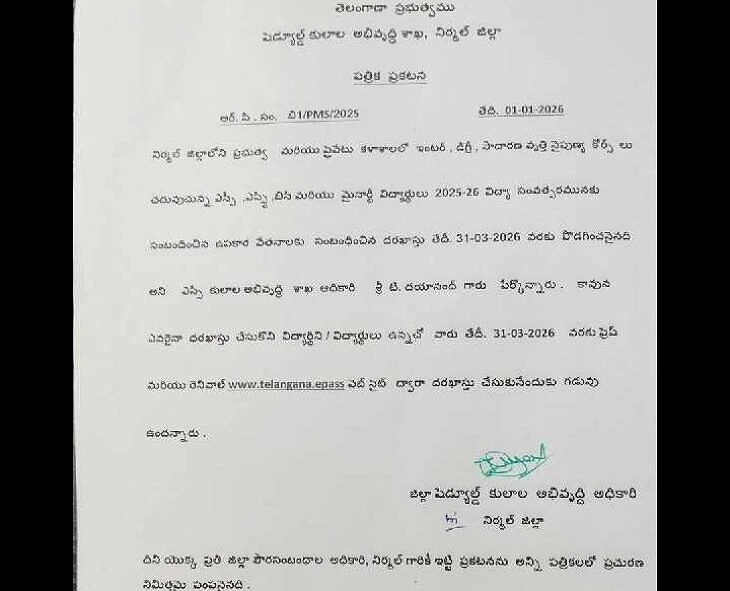 తెలంగాణా ప్రభుత్వము
షెడ్యూల్డ్ కులాల అభివృద్ధి శాఖ, నిర్మల్ జిల్లా
పత్రిక ప్రకటన
ఆర్. సి . సం. బి1/PMS/2025 తేదీ. 01-01-2026
నిర్మల్ జిల్లాలోని ప్రభుత్వ మరియు ప్రైవటు కళాశాలలో ఇంటర్ , డిగ్రీ , సాదారణ వృత్తి నైపుణ్య కోర్స్ లు
చదువుచున్న ఎస్సీ ,ఎస్టి ,బిసి మరియు మైనార్టీ విద్యార్థులు 2025-26 విద్యా సంవత్సరమునకు
సంబందించిన ఉపకార వేతనాలకు సంబంధించిన దరఖాస్తు తేదీ. 31-03-2026 వరకు పొడగించనైనది
అని ఎస్సి కులాల అభివృద్ధి శాఖ అదికారి శ్రీ టి. దయానంద్ గారు పేర్కొన్నారు . కావున
ఎవరైనా దరఖాస్తు చేసుకొని విద్యార్థిని / విద్యార్థులు ఉన్నచో వారు తేదీ. 31-03-2026 వరకు ఫ్రెష్
మరియు రెనివాల్ www.telangana.epass వెబ్ సైట్ ద్వారా దరఖాస్తు చేసుకునేందుకు గడువు
ఉందన్నారు .
జిల్లా షెడ్యూల్డ్ కులాల అబివృద్ది అధికారి
నిర్మల్ జిల్లా
దీని యొక్క ప్రతి జిల్లా పౌరసంబందాల అదికారి, నిర్మల్ గారికి ఇట్టి ప్రకటనను అన్ని పత్రికలలో ప్రచురణ
నిమిత్తమై పంపనైనది .